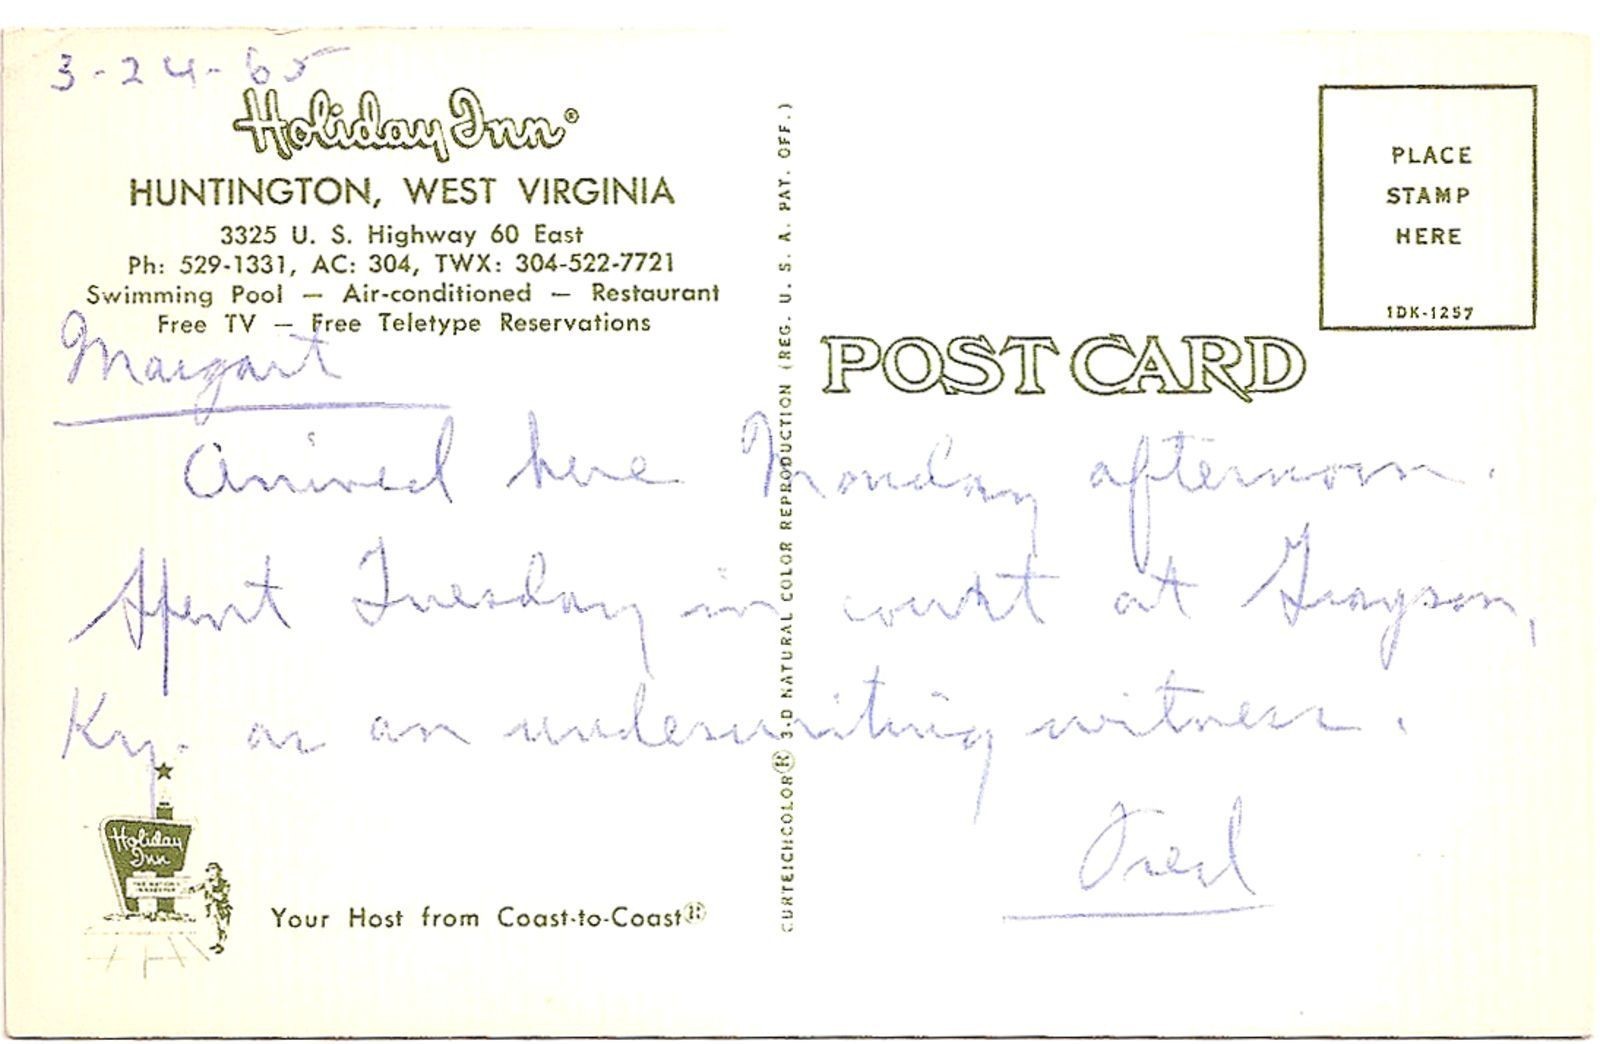 3-24-65
Holiday Inn®
HUNTINGTON, WEST VIRGINIA
3325 U. S. Highway 60 East
Ph: 529-1331, AC: 304, TWX: 304-522-7721
Swimming Pool — Air-conditioned — Restaurant
Free TV — Free Teletype Reservations
PLACE
STAMP
HERE
1DK-1257
POST CARD
CURTEICHCOLOR® 3-D NATURAL COLOR REPRODUCTION (REG. U. S. A. PAT. OFF.)
Margart
Arrived here Monday afternoon.
Spent Tuesday in court at Grayson,
Ky. as an underwriting witness.
Fred
Holiday
Inn
Your Host from Coast-to-Coast®